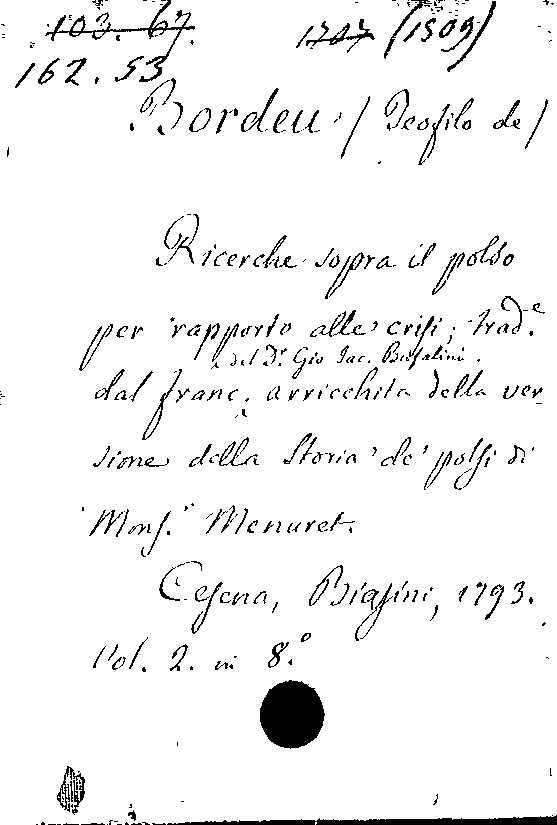 103. 67. 1747 (1509)
162. 53
Bordeu / Teofilo de /
Ricerche sopra il polso
per rapporto alle crisi; trad.e
del D.r Gio Jac. Bufalini.
dal franc. arricchita della ver
sione della Storia de' polsi di
Mons.r Menuret.
Cesena, Biasini, 1793.
Vol. 2. in 8.°